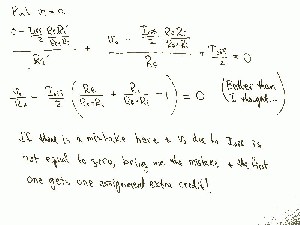 Put vi = 0.
0 - Ios/2 RfRi/(Rf+Ri) / Ri + vo - Ios/2 RfRi/(Rf+Ri) / Rf + Ios/2 = 0
vo/Rf - Ios/2 ( Rf/(Rf+Ri) + Ri/(Rf+Ri) - 1 ) = 0 (Better than I thought...)
if there is a mistake here & vo due to Ios is
not equal to zero, bring me the mistake & the first
one gets one assignment extra credit!